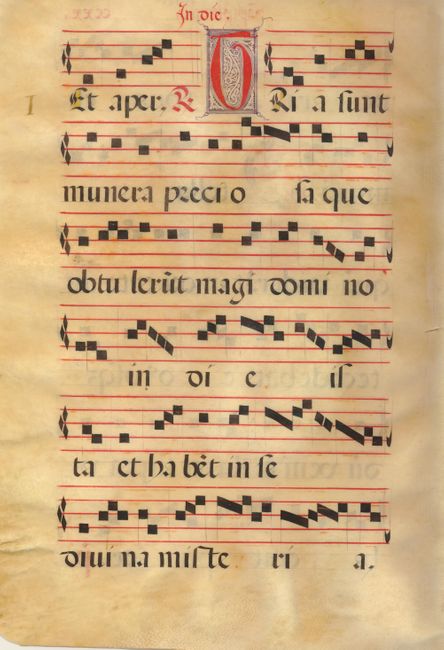 In die.
Et aper. R TRi a sunt
munera precio sa que
obtu lerūt magi domi no
in di e is
ta et ha bēt in se
divi na miste ri a.